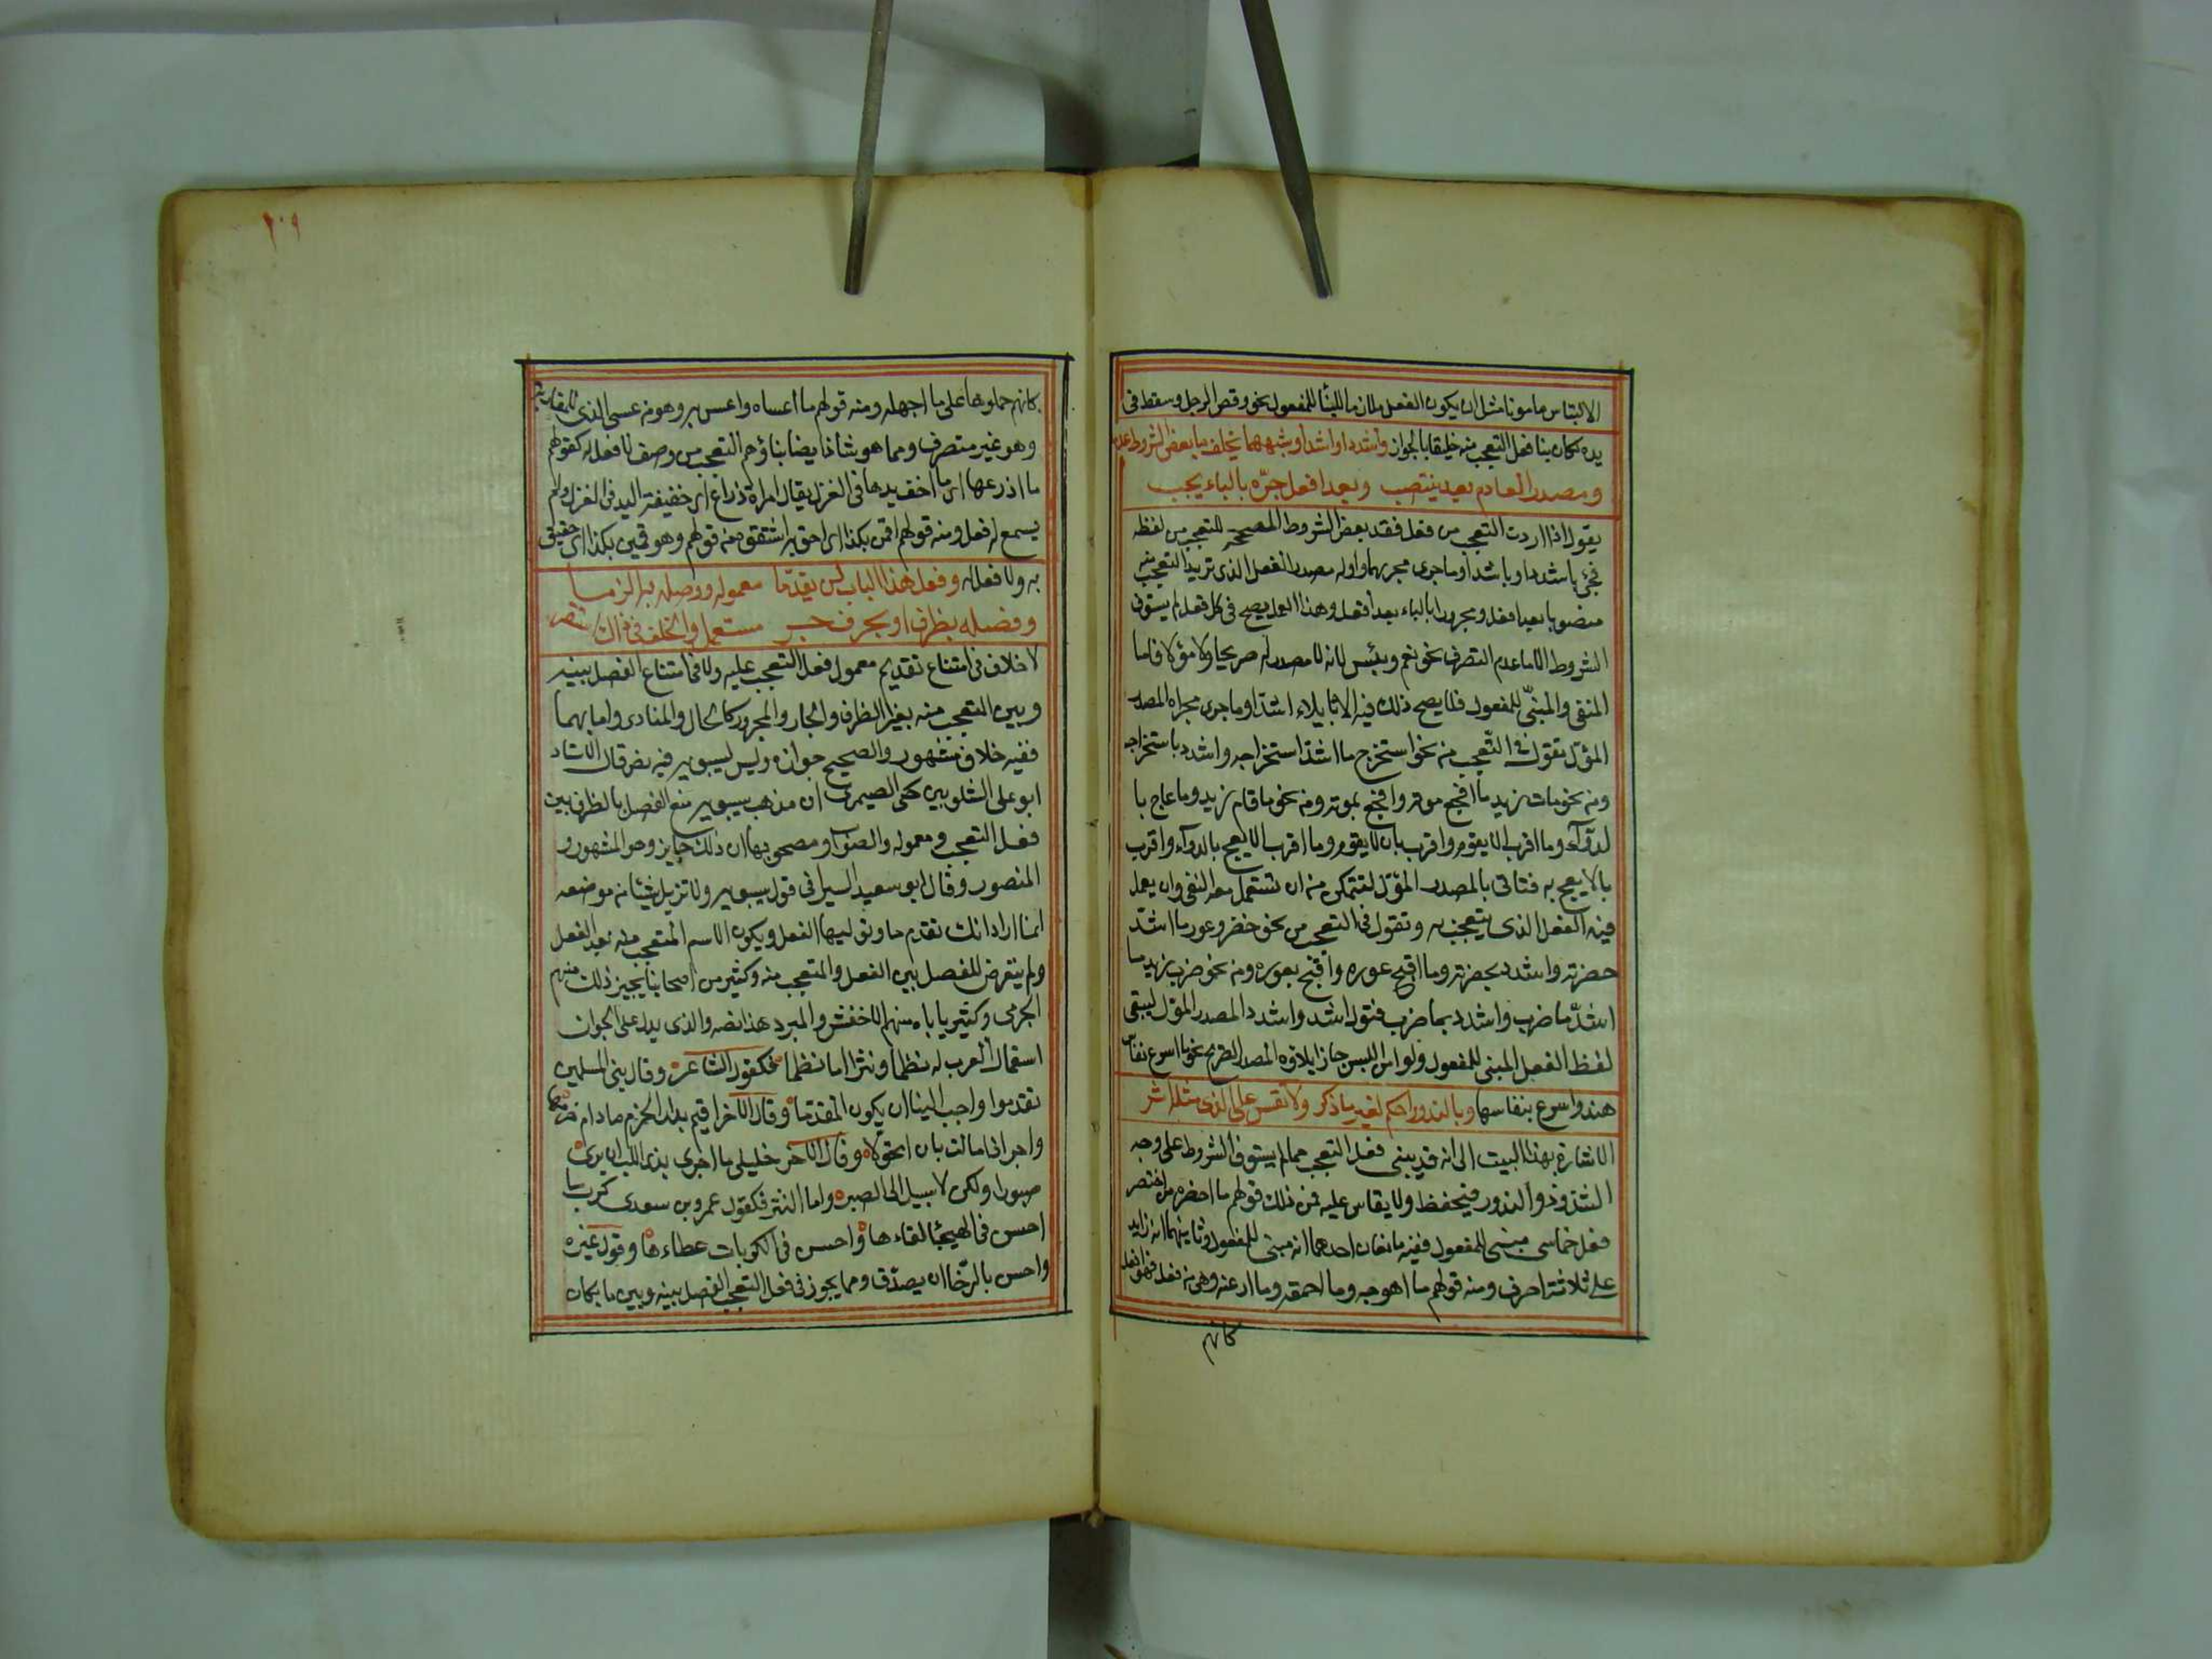 الالتباس مامونا مثل ان يكون الفعل ملازما للبناء للمفعول نحو وقص الرجل وسقط في
يده لكان بنا فعل التعجب منه خليقا بالجواز واشدد او اشد او شبههما يخلف ما بعض الشروط عدما
ومصدر العادم بعد ينتصب وبعد افعل جرّه بالباء يجب
يقول اذا اردت التعجب من فعل فقد بعض الشروط المصححة للتعجب من لفظه
فجئ باشدد او باشد او ما جرى مجريهما واوله مصدر الفعل الذى تريد التعجب منه
منصوبا بعد ما فعل ومجرورا بالباء بعد افعل وهذا العمل يصح في كل فعل لم يستوف
الشروط الا ما عدم التصرف نحو نعم وبئس لانه لا مصدر له صريحا ولا مؤولا فاما
المنفى والمبنىّ للمفعول فلا يصح ذلك فيه الا بايلاء اشد او ما جرى مجراه المصدر
المؤل تقول في التّعجب من نحو استخرج ما اشد استخراجه واشدد باستخراجه
ومن نحو مات زيد ما افجع موته وافجع بموته ومن نحو ما قام زيد وما عاج با
لدوآء وما اقرب الا يقوم واقرب بان لا يقوم وما اقرب الا يعيج بالدواء واقرب
بالا يعيج به فتاتى بالمصدر المؤل لتتمكن من ان تستعمل معه النفى وان يعمل
فيه الفعل الذى يتعجب به وتقول في التعجب من نحو خضر وعور ما اشدّ
خضرته واشدد بخضرته وما اقبح عوره واقبح بعوره ومن نحو ضرب زيد ما
اشدّ ما ضرب واشدد بما ضرب فتول اشد واشدد المصدر المؤل ليبقى
لفظ الفعل المبنى للمفعول ولو امن اللبس جاز ايلاؤه المصدر الصريح نحو ما اسرع نفاس
هند واسرع بنفاسها وبالندور احكم لغير ما ذكر ولا تقس على الذى منه اثر
الاشارة بهذا البيت الى انه قد يبنى فعل التعجب مما لم يستوف الشروط على وجه
الشذوذ والندور فيحفظ ولا يقاس عليه فمن ذلك قولهم ما اخصره من اختصر
فعل خماسى مبنى للمفعول ففيه مانعان احدهما انه مبنى للمفعول وثانيهما انه زايد
على ثلاثة احرف ومنه قولهم ما اهوجه وما احمقه وما ارعنه وهى من فعل فهو افعل
كانهم
٢٠٩
كانهم حملوها على ما اجهله ومنه قولهم ما اعساه واعس به وهو من عسى الذى للمقاربة
وهو غير متصرف ومما هو شاذ ايضا بناؤهم التعجب من وصف لا فعل له كقولهم
ما اذرعها اى ما اخف يدها في الغزل يقال امراة ذراع اى خفيفة اليد في الغزل ولم
يسمع له فعل ومنه قولهم اقمن بكذا اى احق به اشتقوه من قولهم وهو قمين بكذا اى حقيق
به ولا فعل له وفعل هذا الباب لن يقدّما معموله ووصله به الزما
وفصله بظرف او بحرف جر مستعمل والخلف في ذاك استقر
لا خلاف في امتناع تقديم معمول فعل التعجب عليه ولا في امتناع الفصل بينه
وبين المتعجب منه بغير الظرف والجار والمجرور كالحال والمنادى واما بهما
ففيه خلاف مشهور والصحيح جوازه وليس لسيبويه فيه نص قال الاستاد
ابو على الشلوبين حكى الصيمرى ان مذهب سيبويه منع الفصل بالظرف بين
فعل التعجب ومعموله والصواب ان ذلك جايز وهو المشهور و
المنصور وقال ابو سعيد السيرافى قول سيبويه ولا تزيل شيئا من موضعه
انما اراد انك تقدم ما وتوليها الفعل ويكون الاسم المتعجب منه بعد الفعل
ولم يتعرض للفصل بين الفعل والمتعجب منه وكثير من اصحابنا يجيز ذلك منهم
الجرمى وكثير ياباه منهم الاخفش والمبرد هذا نصه والذى يدل على الجواز
استعمال العرب له نظما ونثرا اما نظما فكقول الشاعر وقال نبى المسلمين
تقدموا واحبب الينا ان يكون المقدما وقال الآخر اقيم بدار الحزم ما دام حزمها
واحر اذا حالت بان اتحوّلا وقال الآخر خليلى ما احرى بذى اللب ان يرى
صبورا ولكن لا سبيل الى الصبر واما النثر فكقول عمرو بن معدى كرب ما
احسن في الهيجا لقاءها واحسن في الكربات عطاءها وقول غيره
واحسن بالرّجل ان يصدّق ومما يجوز في فعل التعجب الفصل بينه وبين ما بكان